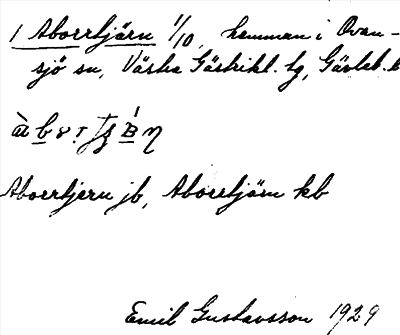 1 Aborrtjärn 1/10, hemman i Ovan-
sjö sn, Västra Gästrikl. tg, Gävleb. l
Aborrtjern jb, Aborrtjärn kb
Emil Gustavsson 1929